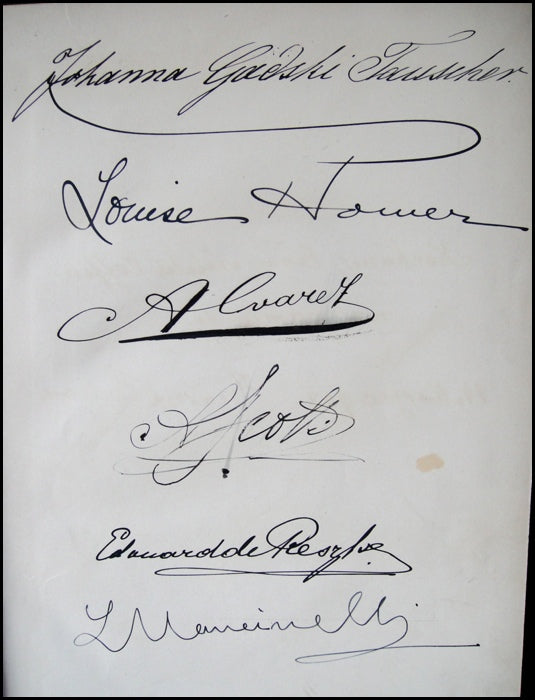 Johanna Gadski Tauscher.
Louise Homer
Alvarez
A Scotti
Edouard de Reszke
L Mancinelli